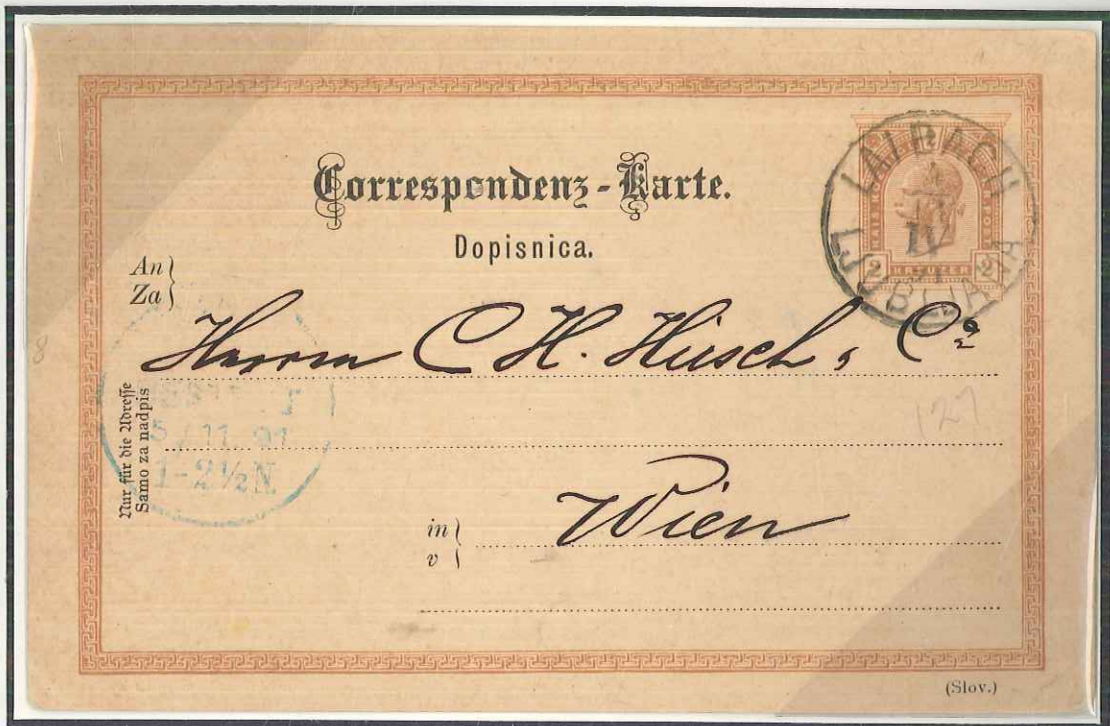 Correspondenz-Karte.
Dopisnica.
LAIBACH
4
11
LJUBLJANA
2 KREUZER 2
An
Za
Herrn C H. Hirsch & Co
127
8
Nur für die Adresse
Samo za nadpis
5/11.91
1-2½N
in
v
Wien
(Slov.)